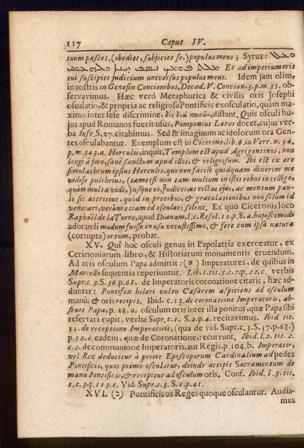 117 Caput IV.
tuum pascet, (obediet, subjiciet se,) populus meus; Syrus:
Et ad imperium oris
tui suscipiet judicium universus populus meus. Idem jam olim,
in nostris in Genesin Concionibus, Decad. V. Concion. 3. p. m. 33. ob-
servavimus. Hæc verò Metaphorica & civilis oris Josephi
osculatio, & propria ac religiosa Pontificis exosculatio, quàm ma-
ximo inter sese discrimine, distant. Quis osculi hu-
jus apud Romanos fuerit usus, Pomponius Lætus docet, cujus ver-
ba Infr. S. 27. citabimus. Sed & imaginum ac idolorum ora Gen-
tes osculabantur. Exemplum est in Cicerone l. 4. in Verr. n. 94.
p. m. 343. a. Herculis, inquit, Templum est apud Agrigentinos, non
longè à foro, sanè sanctum apud illos, & religiosum. Ibi est ex ære
simulachrum ipsius Herculis, quo non facilè quidquam dixerim me
vidisse pulchrius, (tametsi non tam multum in istis rebus intelligo,
quàm multa vidi,) usque eò, Judices, ut rictus ejus, ac mentum pau-
lò sit attritius, quòd in precibus, & gratulationibus non solum id
venerari, verùm etiam id osculari solent. Ex quo Ciceronis loco
Raphaël de la Torre, apud Dianam, l. c. Resol. 10. p. 8. a. hujuscemodi
adorandi modum fuisse in usu vetustissimo, & fere cum ipsa natura
(corrupta) orsum, probat.
XV. Quî hoc osculi genus in Papolatria exerceatur, ex
Cerimoniarum libro, & Historiarum monumentis eruendum.
Ad oris osculum Papa admittit: (א) Imperatores, de quibus in
Marcello sequentia reperiuntur. Lib. 1. tit. 5. c. 7. p. 22. c. verbis
Supr. c. 3. S. 38. p. 68. de Imperatoris coronatione citatis, hæc ad-
duntur: Pontifex hilari vultu Cæsarem aspiciens ad osculum
manûs & oris recipit. Ibid. c. 13. de coronatione Imperatoris, ab-
sente Papa, p. 28. a. osculum oris inter illa ponitur, quæ Papa sibi
reservari cupit, verba Supr. c. 1. S. 2. p. 4. recitavimus. Ibid. tit.
13. de receptione Imperatoris, (qua de vid. Supr. c. 3. S. 37. p. 68.)
p. 52. c. eadem, quæ de Coronatione, recurrunt. Ibid. l. 2. tit. 2.
c. 2. de communione Imperatoris, aut Regis, p. 104. b. Imperator,
vel Rex deducitur à priore Episcoporum Cardinalium ad pedes
Pontificis, quos primò osculatur, deinde accipit Sacramentum de
manu Pontificis, & recipitur ad osculum oris. Conf. Ibid. l. 3. tit.
1. c. 3. p. 113. c. Vid. Supr. c. 3. S. 2. p. 41.
XVI. (2) Pontificis os Reges quoque osculantur. Audia-
mus